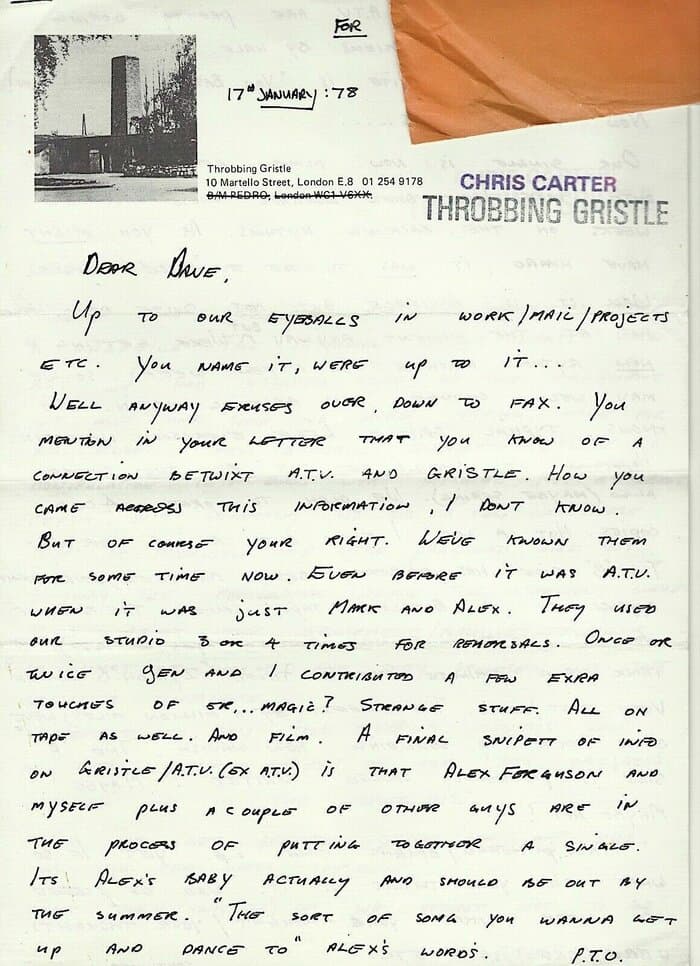 FOR
17TH JANUARY : 78
Throbbing Gristle
10 Martello Street, London E.8 01 254 9178
B/M PEDRO, London WC1 V6XX.
CHRIS CARTER
THROBBING GRISTLE
DEAR DAVE,
UP TO OUR EYEBALLS IN WORK/MAIL/PROJECTS
ETC. YOU NAME IT, WERE UP TO IT...
WELL ANYWAY EXUSES OVER, DOWN TO FAX. YOU
MENTION IN YOUR LETTER THAT YOU KNOW OF A
CONNECTION BETWIXT A.T.V. AND GRISTLE. HOW YOU
CAME ACROSS THIS INFORMATION, I DONT KNOW.
BUT OF COURSE YOUR RIGHT. WE'VE KNOWN THEM
FOR SOME TIME NOW. EVEN BEFORE IT WAS A.T.V.
WHEN IT WAS JUST MARK AND ALEX. THEY USED
OUR STUDIO 3 OR 4 TIMES FOR REHORSALS. ONCE OR
TWICE GEN AND I CONTRIBUTED A FEW EXRA
TOUCHES OF ER... MAGIC? STRANGE STUFF. ALL ON
TAPE AS WELL. AND FILM. A FINAL SNIPETT OF INFO
ON GRISTLE/A.T.V. (EX A.T.V.) IS THAT ALEX FERGUSON AND
MYSELF PLUS A COUPLE OF OTHER GUYS ARE IN
THE PROCESS OF PUTTING TOGETHER A SINGLE.
ITS ALEX'S BABY ACTUALLY AND SHOULD BE OUT BY
THE SUMMER. "THE SORT OF SONG YOU WANNA GET
UP AND DANCE TO" ALEX'S WORDS. P.T.O.